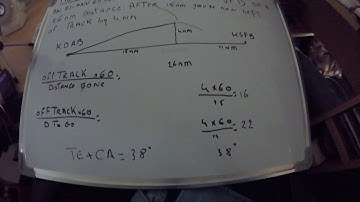 26NM DISTANCE. AFTER 15NM YOU'RE NOW LEFT
OF TRACK BY 4NM
4NM
KDAB
KSFB
15NM
11NM
26NM
OFF TRACK × 60
DISTANCE GONE
4 × 60 = 16
15
OFF TRACK × 60
D TO GO
4 × 60 = 22
11
TE + CA = 38°
38°